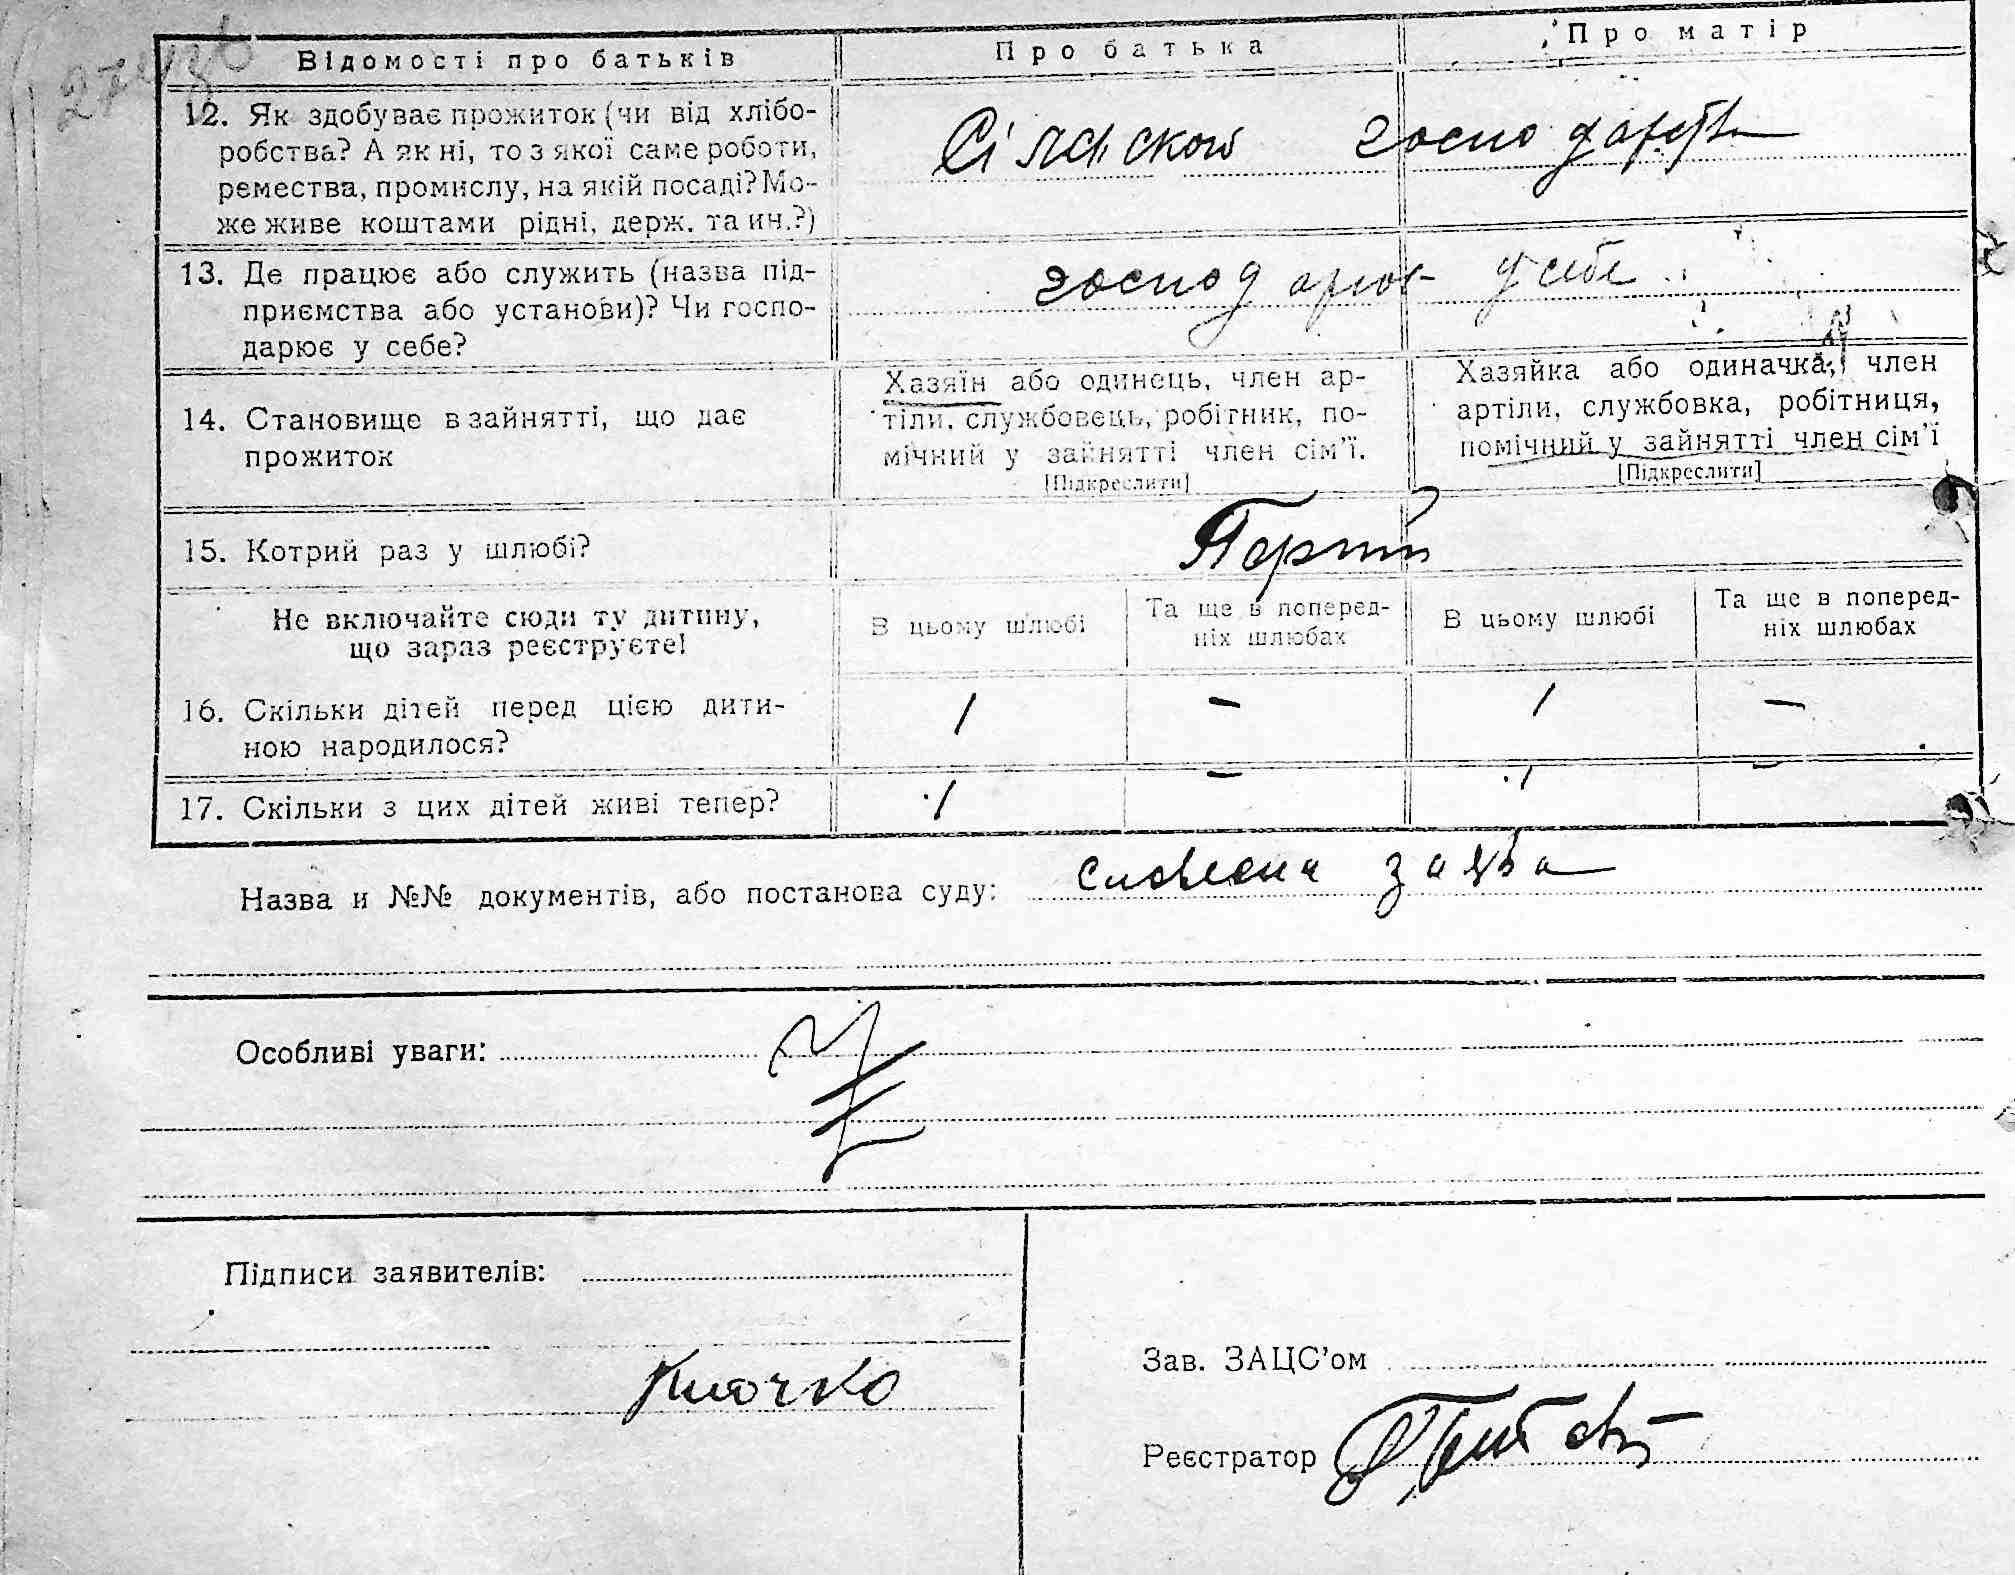 Відомості про батьків
Про батька
Про матір
12. Як здобуває прожиток (чи від хлібо-
робства? А як ні, то з якої саме роботи,
ремества, промислу, на якій посаді? Мо-
же живе коштами рідні, держ. та ин.?)
господарства
13. Де працює або служить (назва під-
приємства або установи)? Чи госпо-
дарює у себе?
господарює у себе
14. Становище в зайнятті, що дає
прожиток
Хазяїн або одинець, член ар-
тіли, службовець, робітник, по-
мічний у зайнятті член сім’ї.
[Підкреслити]
Хазяйка або одиначка, член
артіли, службовка, робітниця,
помічний у зайнятті член сім’ї
[Підкреслити]
15. Котрий раз у шлюбі?
Перший
Не включайте сюди ту дитину,
що зараз реєструєте!
В цьому шлюбі
Та ще в поперед-
ніх шлюбах
В цьому шлюбі
Та ще в поперед-
ніх шлюбах
16. Скільки дітей перед цією дити-
ною народилося?
1 – 1 –
17. Скільки з цих дітей живі тепер?
1 – 1 –
Назва и №№ документів, або постанова суду: словесна заява
Особливі уваги:
Підписи заявителів:
Клочко
Зав. ЗАЦС’ом
Реєстратор